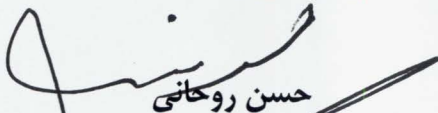 حسن روحانی